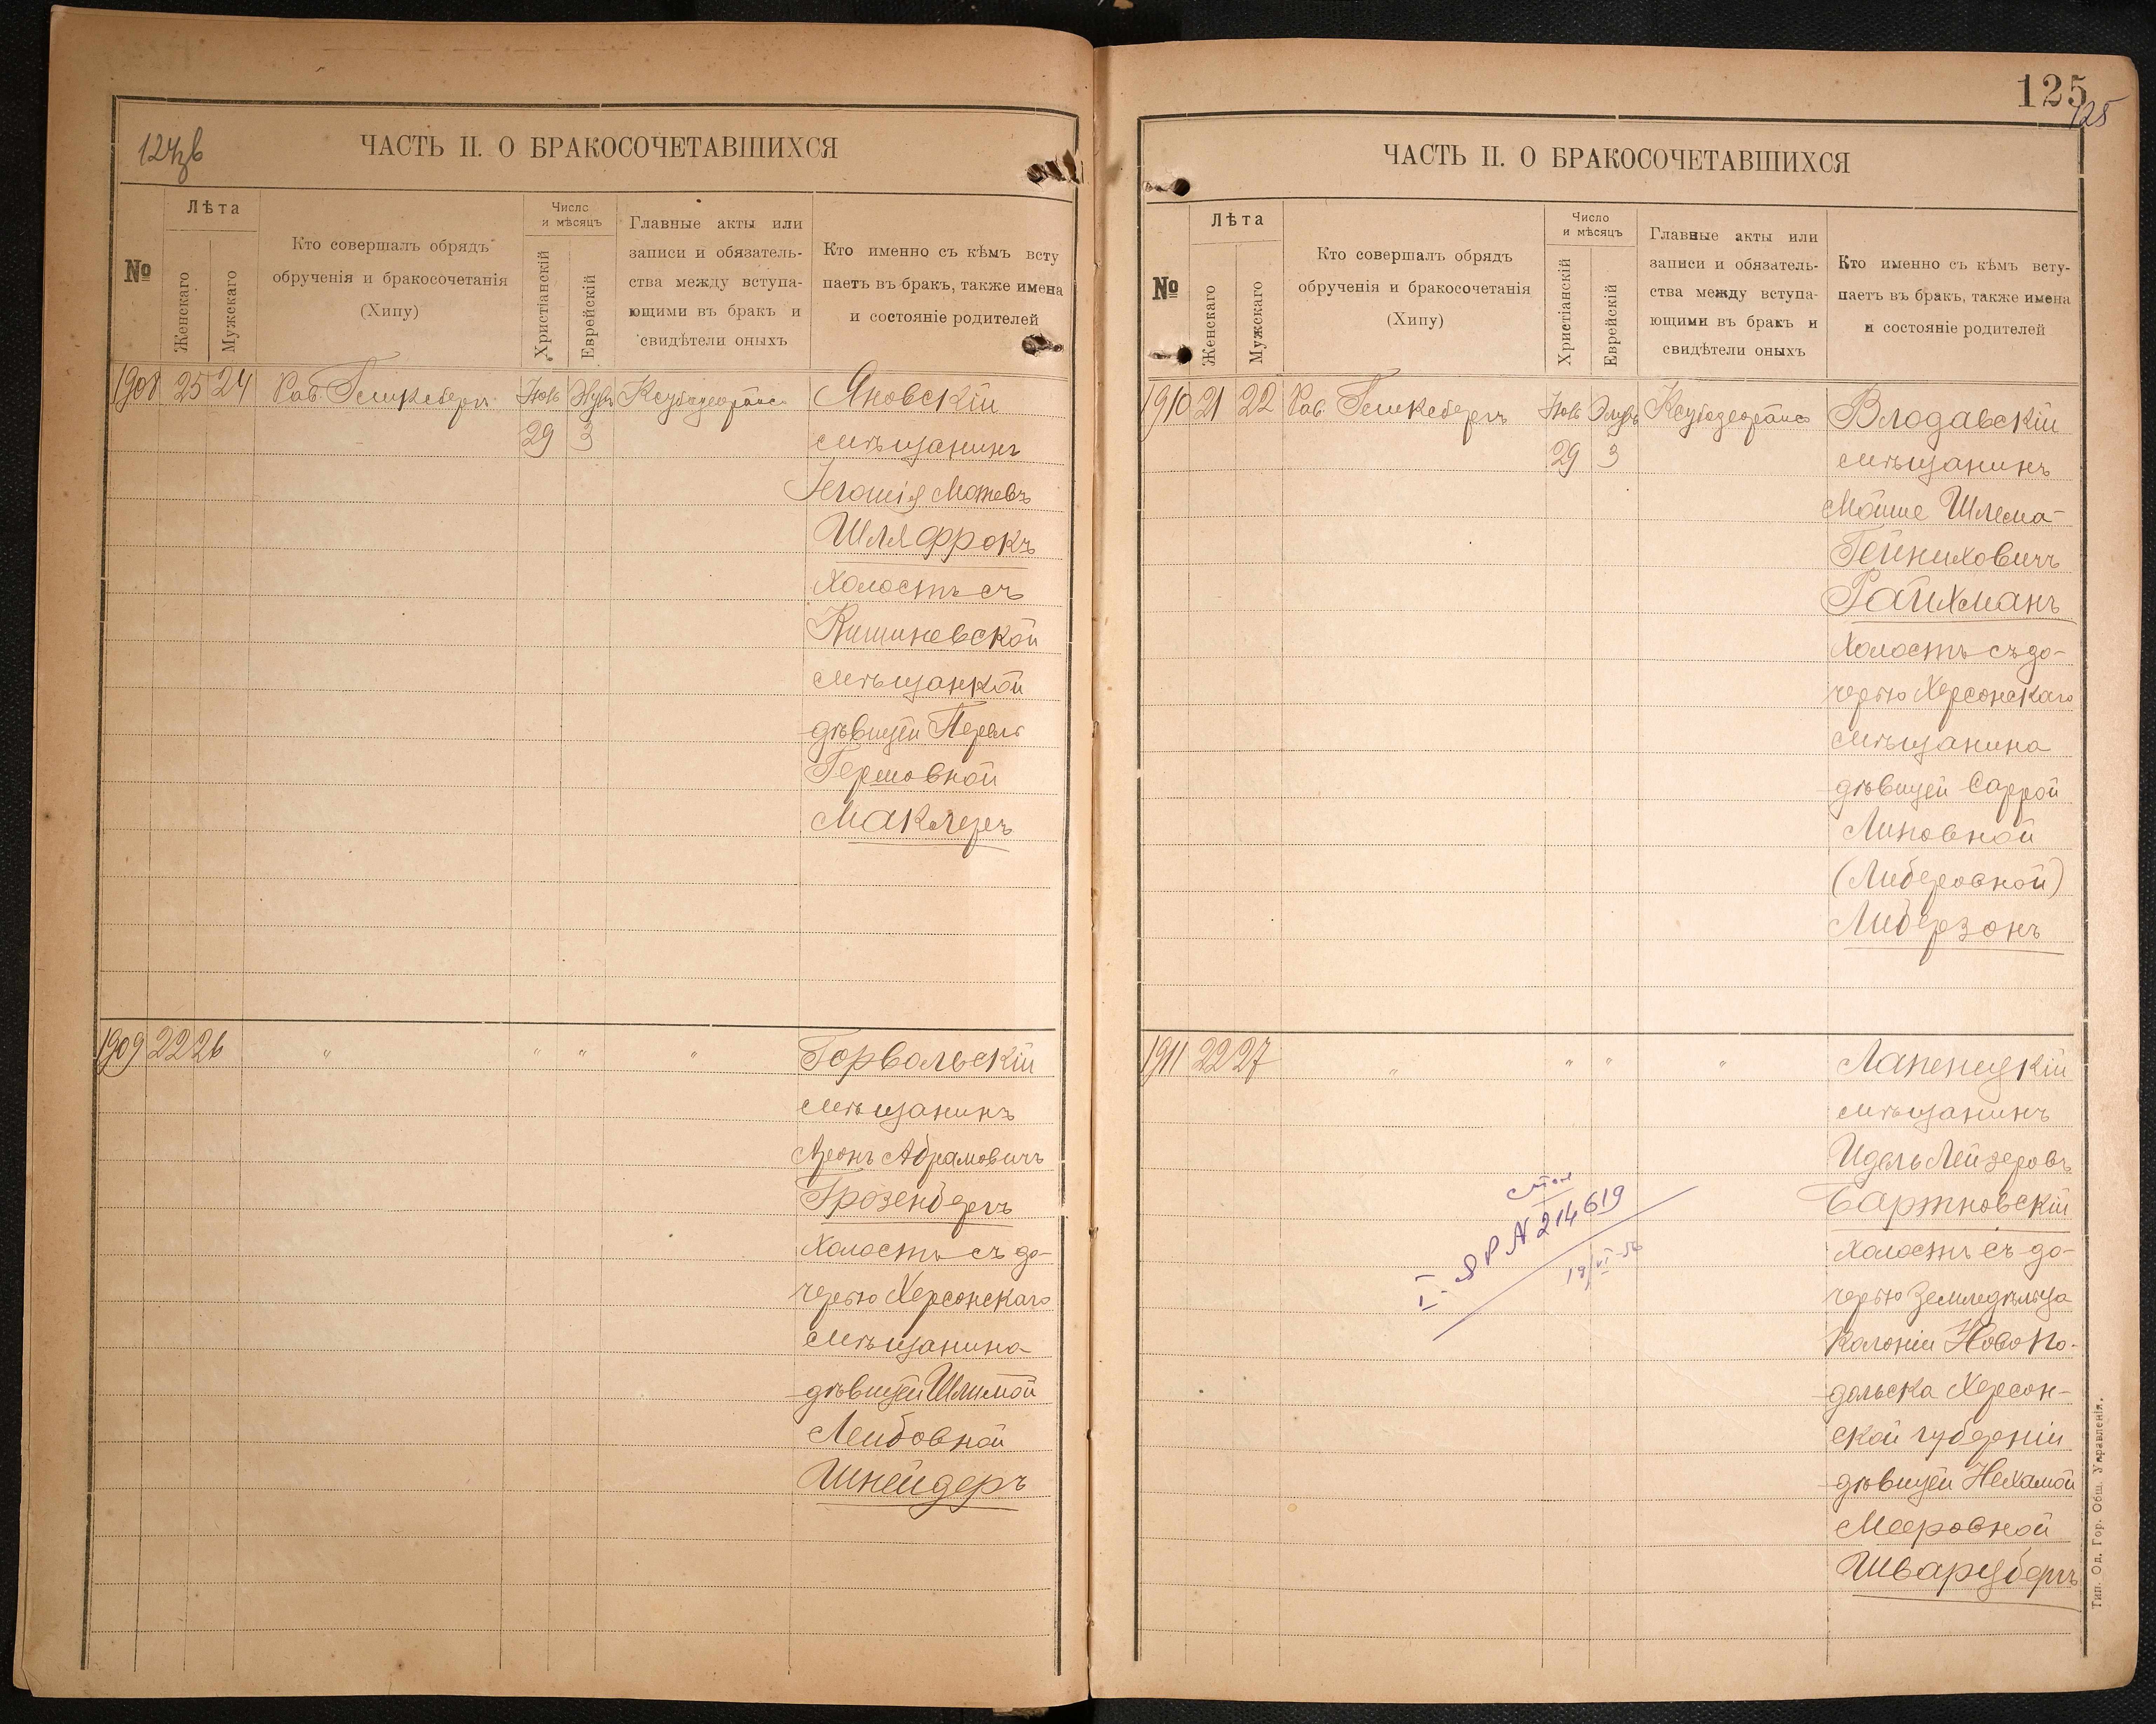 124 об
ЧАСТЬ II. О БРАКОСОЧЕТАВШИХСЯ
№
Лѣта
Женскаго
Мужскаго
Кто совершалъ обрядъ
обрученія и бракосочетанія
(Хипу)
Число
и мѣсяцъ
Христіанскій
Еврейскій
Главные акты или
записи и обязатель-
ства между вступа-
ющими въ бракъ и
свидѣтели оныхъ
Кто именно съ кѣмъ всту
паетъ въ бракъ, также имена
и состояніе родителей
1908 25 24 Раб. Яновскій
29 3 мѣщанинъ
Шляфрокъ
Холостъ съ
Кишиневской
мѣщанкой
дѣвицей
Гершовной
Маклеръ
1909 22 26 " " " " Горвальскій
мѣщанинъ
Аронъ Абрамовичъ
Грозенбергъ
Холостъ съ до-
черью Херсонскаго
мѣщанина
дѣвицей Шлимой
Лейбовной
Шнейдеръ
125
125
ЧАСТЬ II. О БРАКОСОЧЕТАВШИХСЯ
№
Лѣта
Женскаго
Мужскаго
Кто совершалъ обрядъ
обрученія и бракосочетанія
(Хипу)
Число
и мѣсяцъ
Христіанскій
Еврейскій
Главные акты или
записи и обязатель-
ства между вступа-
ющими въ бракъ и
свидѣтели оныхъ
Кто именно съ кѣмъ всту-
паетъ въ бракъ, также имена
и состояніе родителей
1910 21 22 Раб. Влодавскій
29 3 мѣщанинъ
Мойше Шлема-
Гейниховичъ
Райхманъ
Холостъ съ до-
черью Херсонскаго
мѣщанина
дѣвицей Саррой
Липовной
(Либеровной)
Либерзонъ
1911 22 27 " " " " Лапеницкій
мѣщанинъ
Идель Лейзеровъ
Бартновскій
Холостъ съ до-
черью земледѣльца
колоніи Новопо-
дольска Херсон-
ской губерніи
дѣвицей Нехамой
Мееровной
Шварцбергъ
I-ЯР № 214619
Тип. Од. Гор. Общ. Управленія.